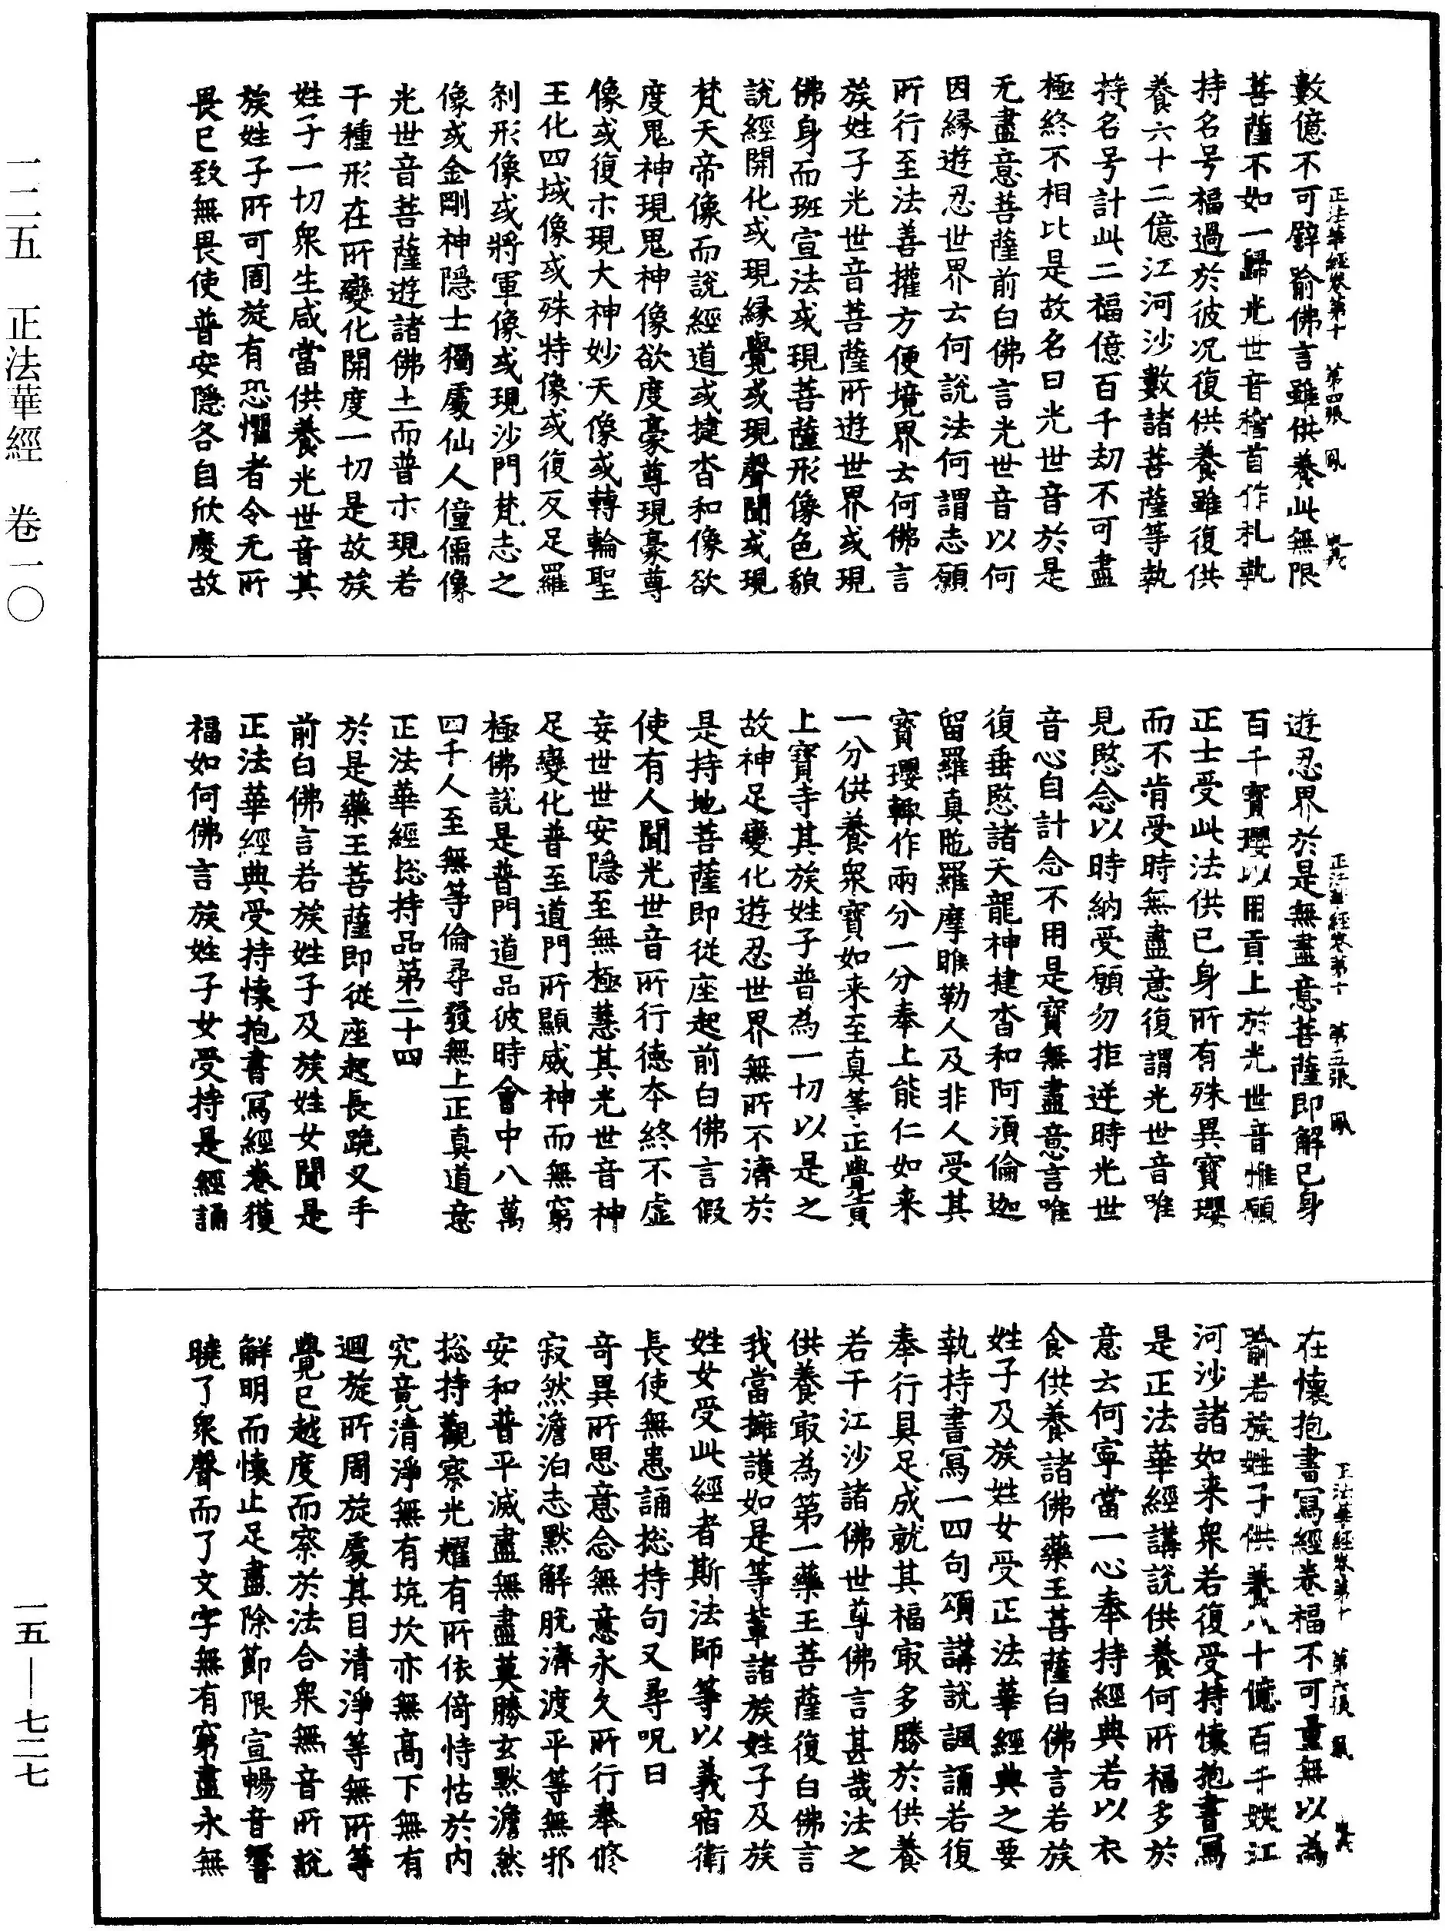 數億不可譬喻佛言雖供養此無限
菩薩不如一歸光世音稽首作礼執
持名号福過於彼况復供養雖復供
養六十二億江河沙數諸菩薩等執
持名号計此二福億百千劫不可盡
極終不相比是故名曰光世音於是
无盡意菩薩前白佛言光世音以何
因緣遊忍世界云何說法何謂志願
所行至法善權方便境界云何佛言
族姓子光世音菩薩所遊世界或現
佛身而班宣法或現菩薩形像色貌
說經開化或現緣覺或現聲聞或現
梵天帝像而說經道或揵沓和像欲
度鬼神現鬼神像欲度豪尊現豪尊
像或復示現大神妙天像或轉輪聖
王化四域像或殊特像或復反足羅
剎形像或將軍像或現沙門梵志之
像或金剛神隱士獨處仙人僮儒像
光世音菩薩遊諸佛土而普示現若
干種形在所變化開度一切是故族
姓子一切眾生咸當供養光世音其
族姓子所可周旋有恐懼者令无所
畏已致無畏使普安隱各自欣慶故
正法華經卷第十 第四張 鳳
遊忍界於是無盡意菩薩即解己身
百千寶瓔以用貢上於光世音惟願
正士受此法供己身所有殊異寶瓔
而不肯受時無盡意復謂光世音唯
見愍念以時納受願勿拒逆時光世
音心自計念不用是寶無盡意言唯
復垂愍諸天龍神揵沓和阿須倫迦
留羅真陁羅摩睺勒人及非人受其
寶瓔輙作兩分一分奉上能仁如来
一分供養眾寶如来至真等正覺貢
上寶寺其族姓子普為一切以是之
故神足變化遊忍世界無所不濟於
是持地菩薩即從座起前白佛言假
使有人聞光世音所行德本終不虛
妄世世安隱至無極慧其光世音神
足變化普至道門所顯威神而無窮
極佛說是普門道品彼時會中八萬
四千人至無等倫尋發無上正真道意
正法華經捴持品第二十四
於是藥王菩薩即從座起長跪叉手
前白佛言若族姓子及族姓女聞是
正法華經典受持懷抱書寫經卷獲
福如何佛言族姓子女受持是經誦
正法華經卷第十 第五張 鳳
在懷抱書寫經卷福不可量無以為
喻若族姓子供養八十億百千姟江
河沙諸如来眾若復受持懷抱書寫
是正法華經講說供養何所福多於
意云何寧當一心奉持經典若以衣
食供養諸佛藥王菩薩白佛言若族
姓子及族姓女受正法華經典之要
執持書寫一四句頌講說諷誦若復
奉行具足成就其福㝡多勝於供養
若干江沙諸佛世尊佛言甚哉法之
供養㝡為第一藥王菩薩復白佛言
我當擁護如是等輩諸族姓子及族
姓女受此經者斯法師等以義宿衛
長使無恙誦捴持句又尋呪曰
奇異所思意念無意永久所行奉修
寂然澹泊志默解脫濟渡平等無邪
安和普平滅盡無盡莫勝玄默澹然
捴持觀察光耀有所依倚恃怙於內
究竟清淨無有坑坎亦無高下無有
迴旋所周旋處其目清淨等無所等
覺已越度而察於法合眾無音所說
解明而懷止足盡除節限宣暢音響
曉了眾聲而了文字無有窮盡永無
正法華經卷第十 第六張 鳳
一二五 正法華經 卷一〇
一五—七二七